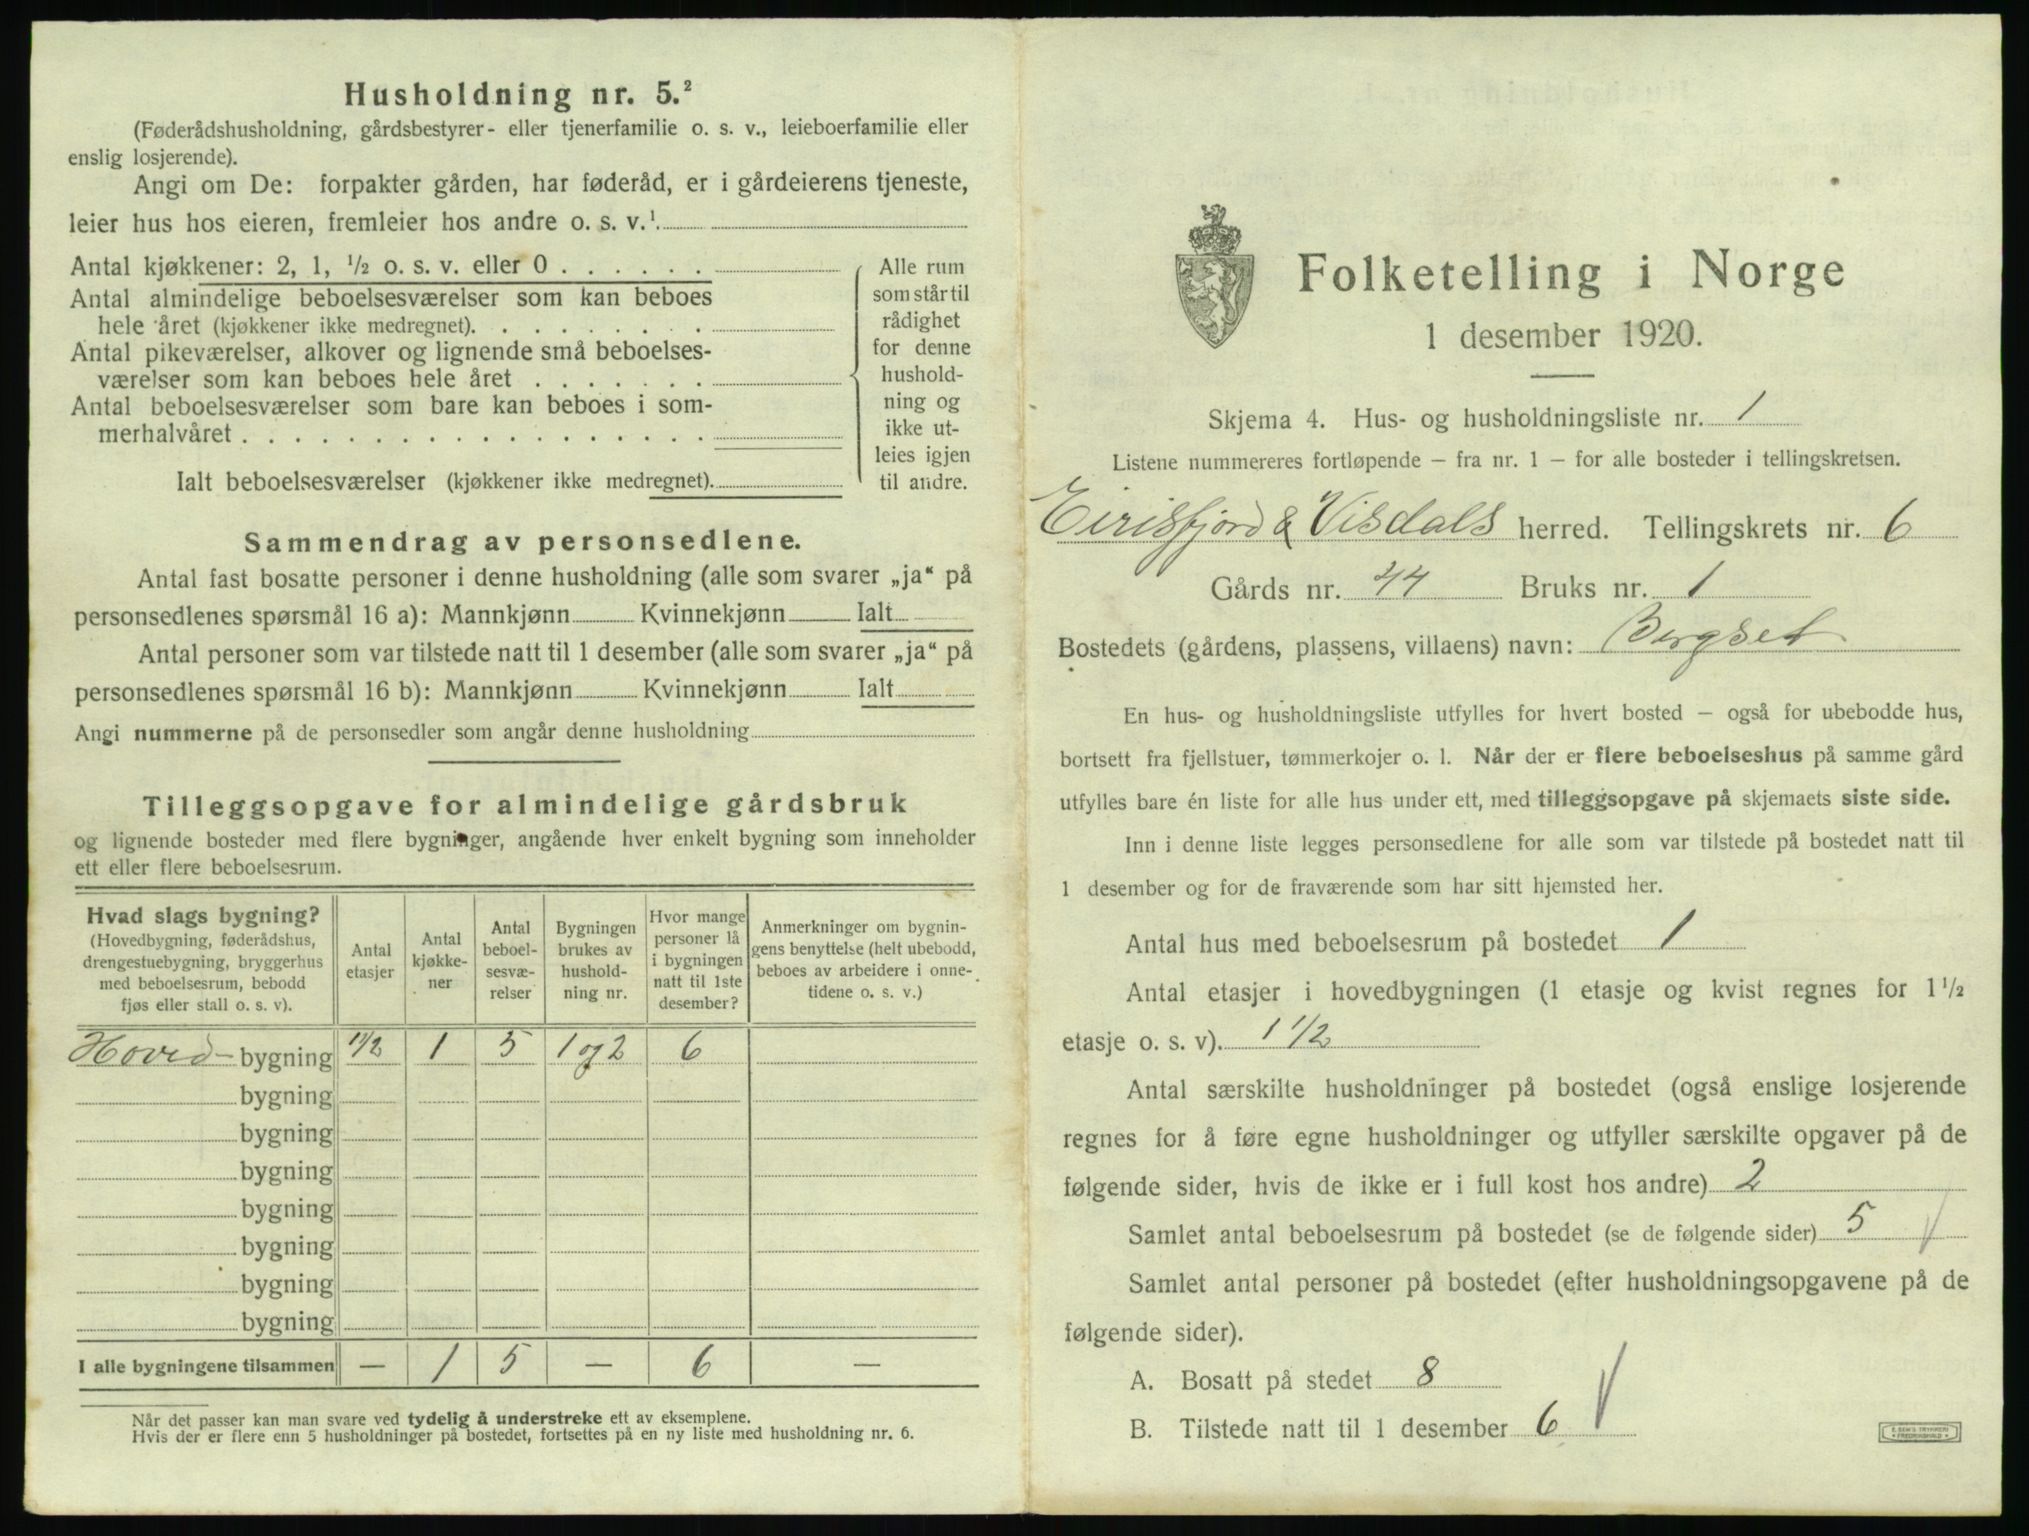 Husholdning nr. 5.²
(Føderådshusholdning, gårdsbestyrer- eller tjenerfamilie o. s. v., leieboerfamilie eller
enslig losjerende).
Angi om De: forpakter gården, har føderåd, er i gårdeierens tjeneste,
leier hus hos eieren, fremleier hos andre o. s. v.¹
Antal kjøkkener: 2, 1, ½ o. s. v. eller 0 . . . . . .
Antal almindelige beboelsesværelser som kan beboes
hele året (kjøkkener ikke medregnet). . . . . . . . .
Antal pikeværelser, alkover og lignende små beboelses-
værelser som kan beboes hele året . . . . . . .
Antal beboelsesværelser som bare kan beboes i som-
merhalvåret . . . . . . . . . . . . . . . . . .
Ialt beboelsesværelser (kjøkkener ikke medregnet).
Alle rum
som står til
rådighet
for denne
hushold-
ning og
ikke ut-
leies igjen
til andre.
Sammendrag av personsedlene.
Antal fast bosatte personer i denne husholdning (alle som svarer „ja“ på
personsedlenes spørsmål 16 a): Mannkjønn Kvinnekjønn Ialt
Antal personer som var tilstede natt til 1 desember (alle som svarer „ja“ på
personsedlenes spørsmål 16 b): Mannkjønn Kvinnekjønn Ialt
Angi nummerne på de personsedler som angår denne husholdning
Tilleggsopgave for almindelige gårdsbruk
og lignende bosteder med flere bygninger, angående hver enkelt bygning som inneholder
ett eller flere beboelsesrum.
Hvad slags bygning?
(Hovedbygning, føderådshus,
drengestuebygning, bryggerhus
med beboelsesrum, bebodd
fjøs eller stall o. s. v).
Antal
etasjer
Antal
kjøkke-
ner
Antal
beboel-
sesvæ-
relser
Bygningen
brukes av
hushold-
ning nr.
Hvor mange
personer lå
i bygningen
natt til 1ste
desember?
Anmerkninger om bygnin-
gens benyttelse (helt ubebodd,
beboes av arbeidere i onne-
tidene o. s. v.)
Hoved- bygning 1½ 1 5 1 og 2 6
bygning
bygning
bygning
bygning
bygning
bygning
bygning
I alle bygningene tilsammen — 1 5 — 6 —
Når det passer kan man svare ved tydelig å understreke ett av eksemplene.
Hvis der er flere enn 5 husholdninger på bostedet, fortsettes på en ny liste med husholdning nr. 6.
Folketelling i Norge
1 desember 1920.
Skjema 4. Hus- og husholdningsliste nr. 1
Listene nummereres fortløpende – fra nr. 1 – for alle bosteder i tellingskretsen.
Eirisfjord & Visdals herred. Tellingskrets nr. 6
Gårds nr. 44 Bruks nr. 1
Bostedets (gårdens, plassens, villaens) navn: Bergset
En hus- og husholdningsliste utfylles for hvert bosted – også for ubebodde hus,
bortsett fra fjellstuer, tømmerkojer o. l. Når der er flere beboelseshus på samme gård
utfylles bare én liste for alle hus under ett, med tilleggsopgave på skjemaets siste side.
Inn i denne liste legges personsedlene for alle som var tilstede på bostedet natt til
1 desember og for de fraværende som har sitt hjemsted her.
Antal hus med beboelsesrum på bostedet 1
Antal etasjer i hovedbygningen (1 etasje og kvist regnes for 1½
etasje o. s. v). 1½
Antal særskilte husholdninger på bostedet (også enslige losjerende
regnes for å føre egne husholdninger og utfyller særskilte opgaver på de
følgende sider, hvis de ikke er i full kost hos andre) 2
Samlet antal beboelsesrum på bostedet (se de følgende sider) 5
Samlet antal personer på bostedet (efter husholdningsopgavene på de
følgende sider).
A. Bosatt på stedet 8
B. Tilstede natt til 1 desember 6
E. SEM'S TRYKKERI
FREDRIKSHALD